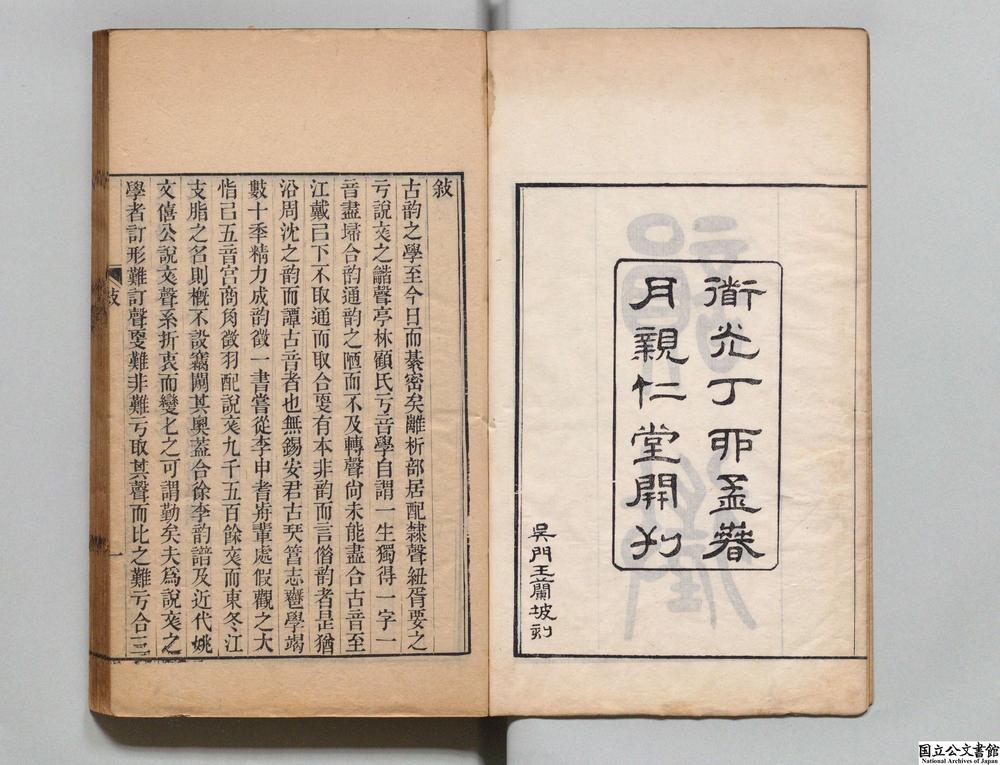 衜光丁丣孟萅
月親仁堂開刋
吳門王蘭坡刻
敍
古韵之學至今日而綦密矣離析部居配隸聲紐胥要之
亏說文之諧聲亭林顧氏亏音學自謂一生獨得一字一
音盡埽合韵通韵之陋而不及轉聲尙未能盡合古音至
江戴㠯下不取通而取合㪅有本非韵而言俗韵者是猶
沿周沈之韵而譚古音者也無錫安君古珡志學竭
數十季精力成韵徵一書嘗從李申耆歬輩處假觀之大
恉㠯五音宮商角徵羽配說文九千五百餘文而東冬江
支脂之名則槪不設竊闚其奧蓋合徐李韵譜及近代姚
文僖公說文聲系折衷而變𠤎之可謂勤矣夫爲說文之
學者訂形難訂聲㪅難非難亏取其聲而比之難亏合三
敍
一
国立公文書館
National Archives of Japan